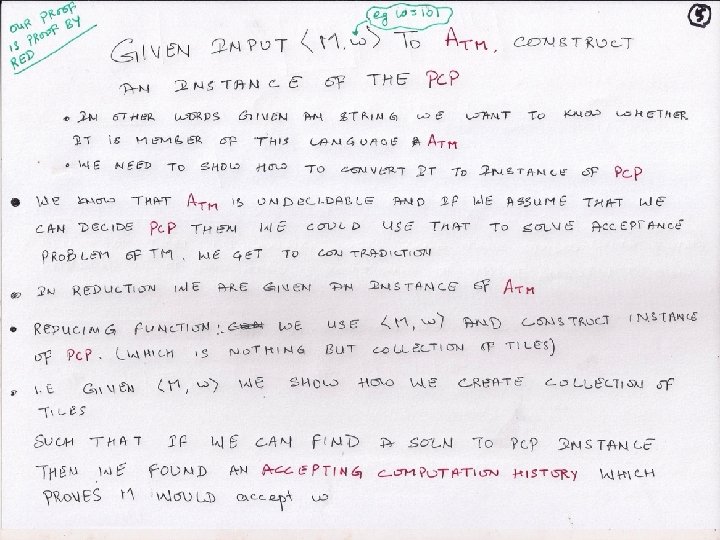 OUR PROOF
IS PROOF BY
RED
eg w=101
5
GIVEN INPUT ⟨M, w⟩ TO ATM, CONSTRUCT
AN INSTANCE OF THE PCP
• IN OTHER WORDS GIVEN AN STRING WE WANT TO KNOW WHETHER
IT IS MEMBER OF THIS LANGUAGE ATM
• WE NEED TO SHOW HOW TO CONVERT IT TO INSTANCE OF PCP
• WE KNOW THAT ATM IS UNDECIDABLE AND IF WE ASSUME THAT WE
CAN DECIDE PCP THEN WE COULD USE THAT TO SOLVE ACCEPTANCE
PROBLEM OF TM. WE GET TO CONTRADICTION
• IN REDUCTION WE ARE GIVEN AN INSTANCE OF ATM
• REDUCING FUNCTION: WE USE ⟨M, w⟩ AND CONSTRUCT INSTANCE
OF PCP. (WHICH IS NOTHING BUT COLLECTION OF TILES)
• I.E GIVEN ⟨M, w⟩ WE SHOW HOW WE CREATE COLLECTION OF
TILES
SUCH THAT IF WE CAN FIND A SOLN TO PCP INSTANCE
THEN WE FOUND AN ACCEPTING COMPUTATION HISTORY WHICH
PROVES M WOULD accept w